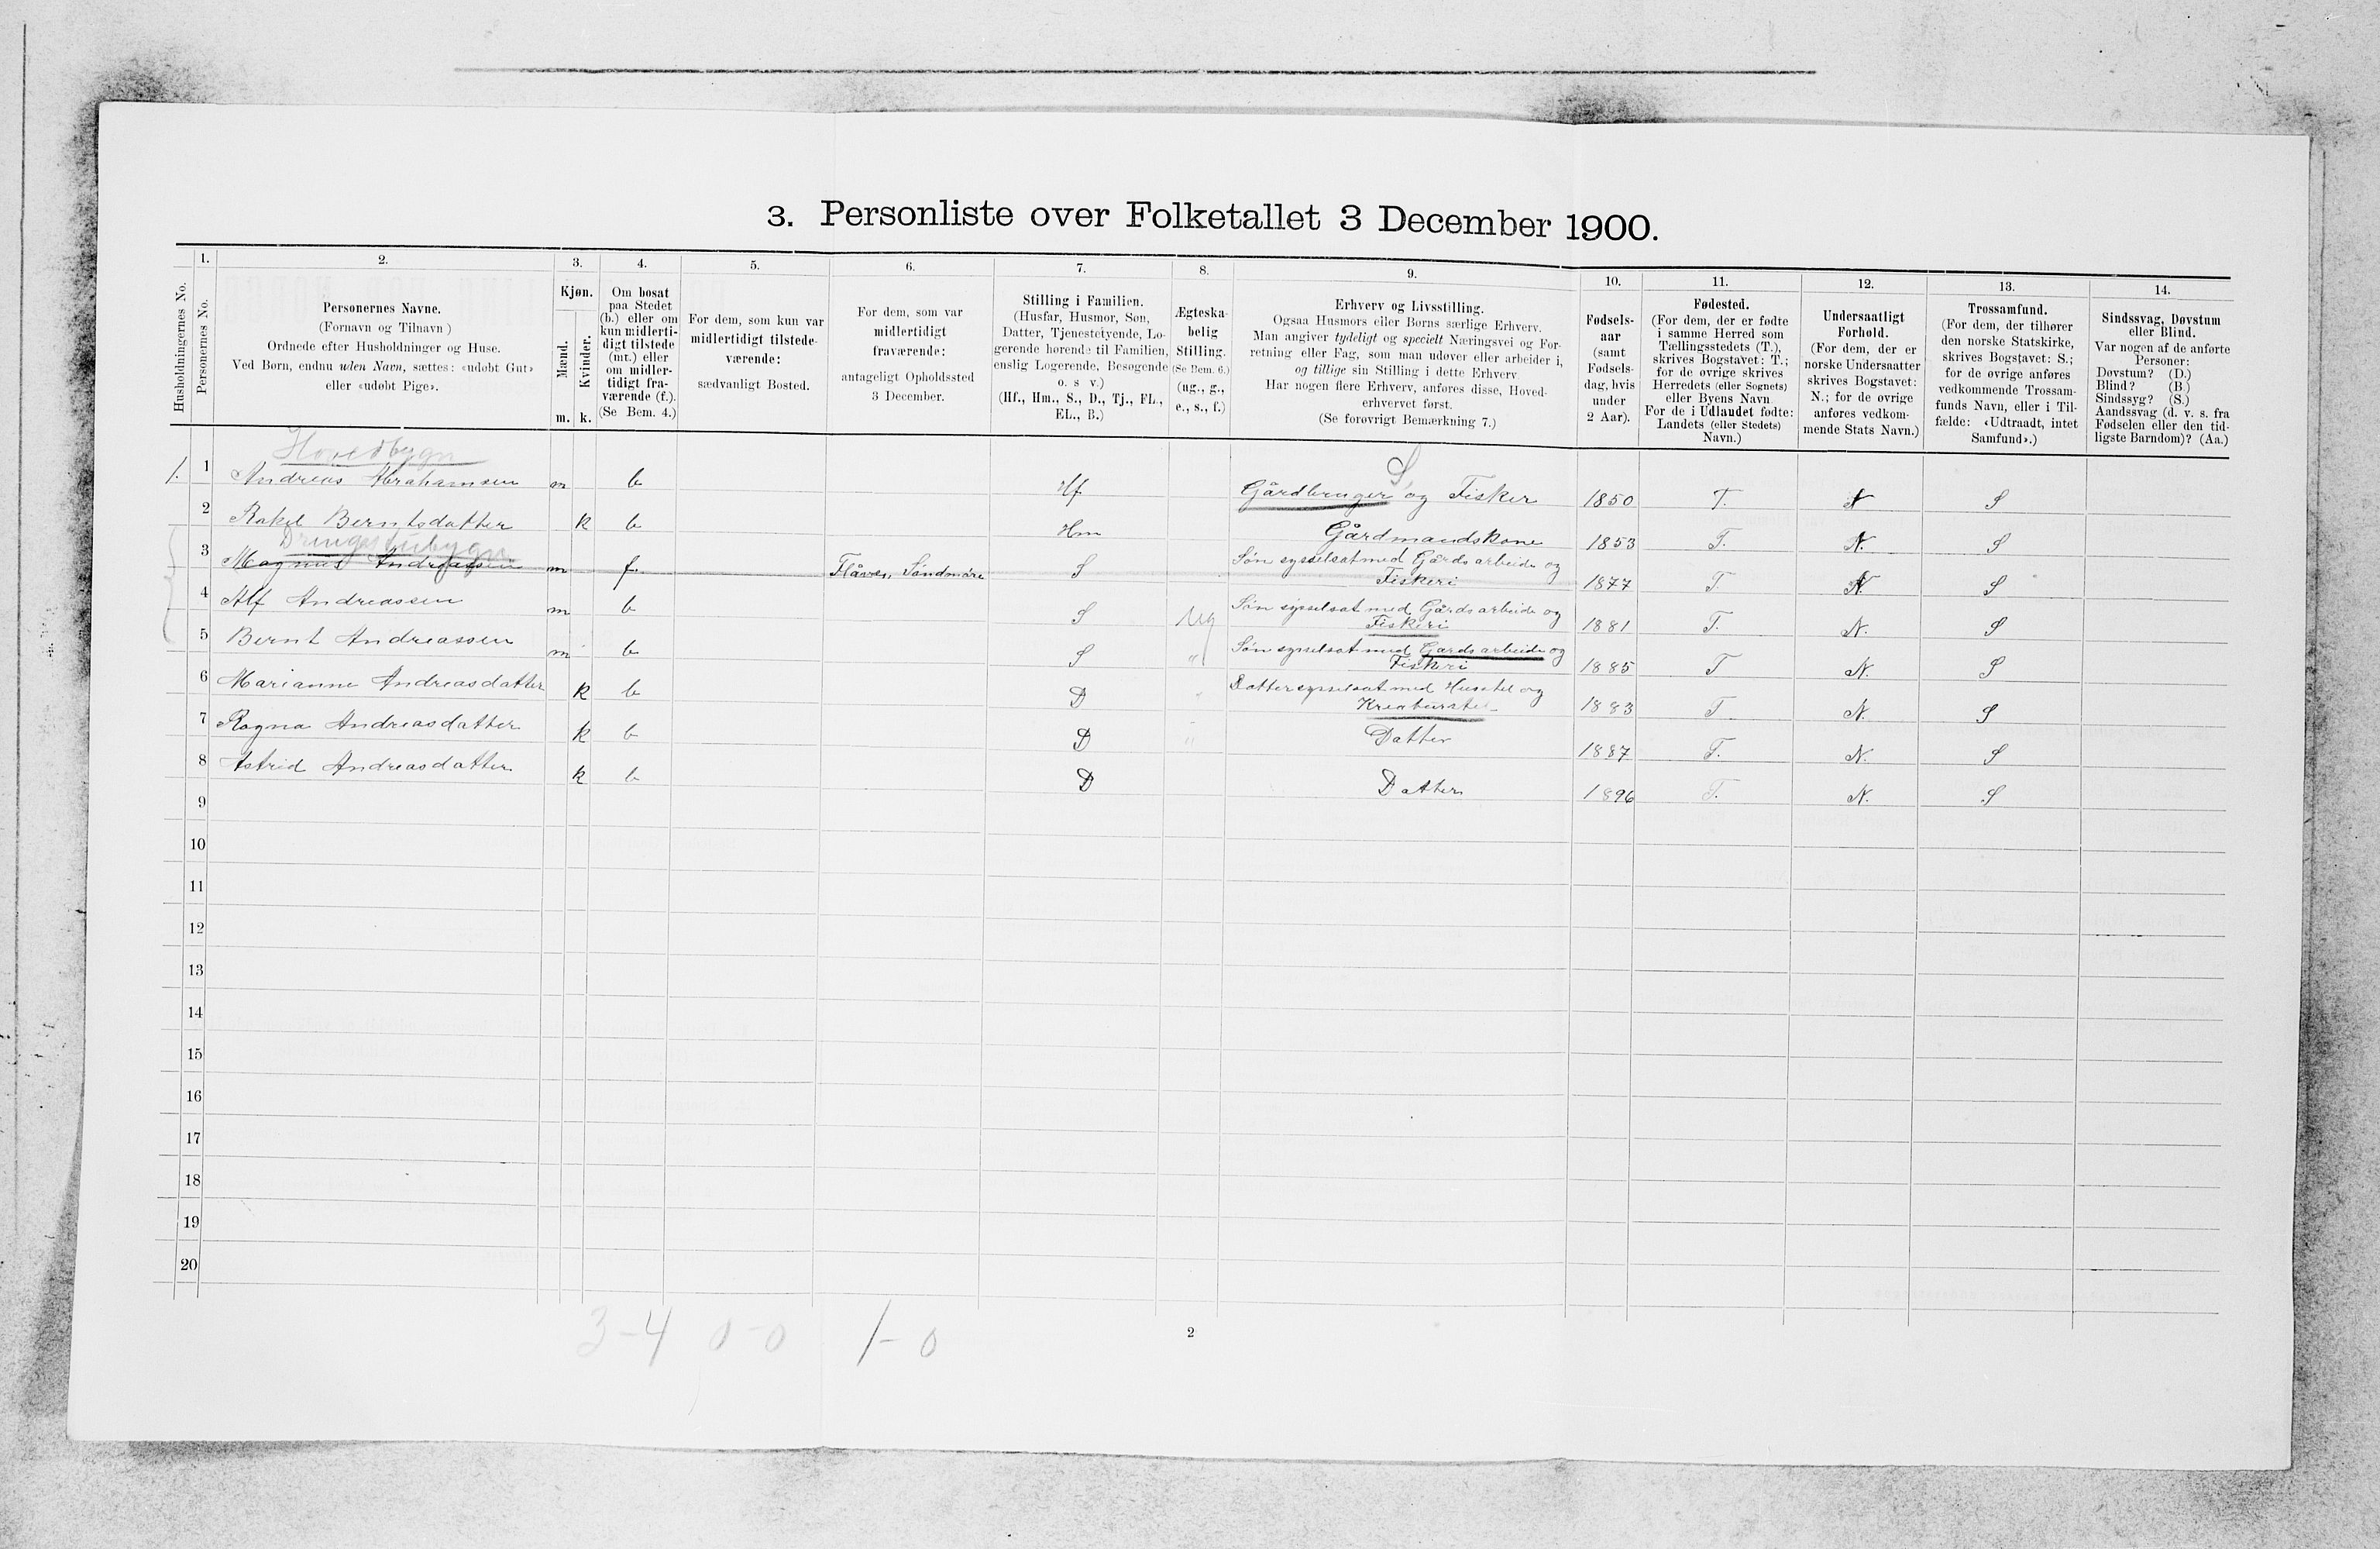 3. Personliste over Folketallet 3 December 1900.
Husholdningernes No.
1.
Personernes No.
2.
Personernes Navne.
(Fornavn og Tilnavn)
Ordnede efter Husholdninger og Huse.
Ved Børn, endnu uden Navn, sættes: «udøbt Gut»
eller «udøbt Pige».
3.
Kjøn.
Mænd.
Kvinder.
m. k.
4.
Om bosat
paa Stedet
(b.) eller om
kun midlerti-
digt tilstede
(mt.) eller
om midler-
tidigt fra-
værende (f.).
(Se Bem. 4.)
5.
For dem, som kun var
midlertidigt tilstede-
værende:
sædvanligt Bosted.
6.
For dem, som var
midlertidigt
fraværende:
antageligt Opholdssted
3 December.
7.
Stilling i Familien.
(Husfar, Husmor, Søn,
Datter, Tjenestetyende, Lo-
gerende hørende til Familien,
enslig Logerende, Besøgende
o. s v.)
(Hf., Hm., S., D., Tj., FL.,
EL., B.)
8.
Ægteska-
belig
Stilling.
(Se Bem. 6.)
(ug., g.,
e., s., f.)
9.
Erhverv og Livsstilling.
Ogsaa Husmors eller Børns særlige Erhverv.
Man angiver tydeligt og specielt Næringsvei og For-
retning eller Fag, som man udøver eller arbeider i,
og tillige sin Stilling i dette Erhverv.
Har nogen flere Erhverv, anføres disse, Hoved-
erhvervet først.
(Se forøvrigt Bemærkning 7.)
10.
Fødsels-
aar
(samt
Fødsels-
dag, hvis
under
2 Aar).
11.
Fødested.
(For dem, der er fødte
i samme Herred som
Tællingsstedets (T.),
skrives Bogstavet: T.;
for de øvrige skrives
Herredets (eller Sognets)
eller Byens Navn
For de i Udlandet fødte:
Landets (eller Stedets)
Navn.)
12.
Undersaatligt
Forhold.
(For dem, der er
norske Undersaatter
skrives Bogstavet:
N.; for de øvrige
anføres vedkom-
mende Stats Navn.)
13.
Trossamfund.
(For dem, der tilhører
den norske Statskirke,
skrives Bogstavet: S.;
for de øvrige anføres
vedkommende Trossam-
funds Navn, eller i Til-
fælde: «Udtraadt, intet
Samfund».)
14.
Sindssvag, Døvstum
eller Blind.
Var nogen af de anførte
Personer:
Døvstum? (D.)
Blind? (B.)
Sindssyg? (S.)
Aandssvag (d. v. s. fra
Fødselen eller den tid-
ligste Barndom)? (Aa.)
Hovedbygn
1. 1 Andreas Abrahamsen m b Hf Gårdbruger og Fisker 1850 T. N S
S
2 Rakel Berntsdatter k b Hm Gårdmandskone 1853 T. N. S
3 Magnus Andreassen m f. Flåvær, Söndmöre S Sön sysselsat med Gårdsarbeide og
Fiskeri 1877 T N. S
4 Alf Andreassen m b S ug Sön sysselsat med Gårdsarbeide og
Fiskeri 1881 T. N. S
5 Bernt Andreassen m b S " Sön sysselsat med Gårdsarbeide og
Fiskeri 1885 T N. S
6 Marianne Andreasdatter k b D " Datter sysselsat med Husstel og
Kreaturstel 1883 T. N. S
7 Ragna Andreasdatter k b D " Datter 1887 T. N. S
8 Astrid Andreasdatter k b D Datter 1896 T. N. S
9
10
11
12
13
14
15
16
17
18
19
20
3-4 0-0 1-0
2